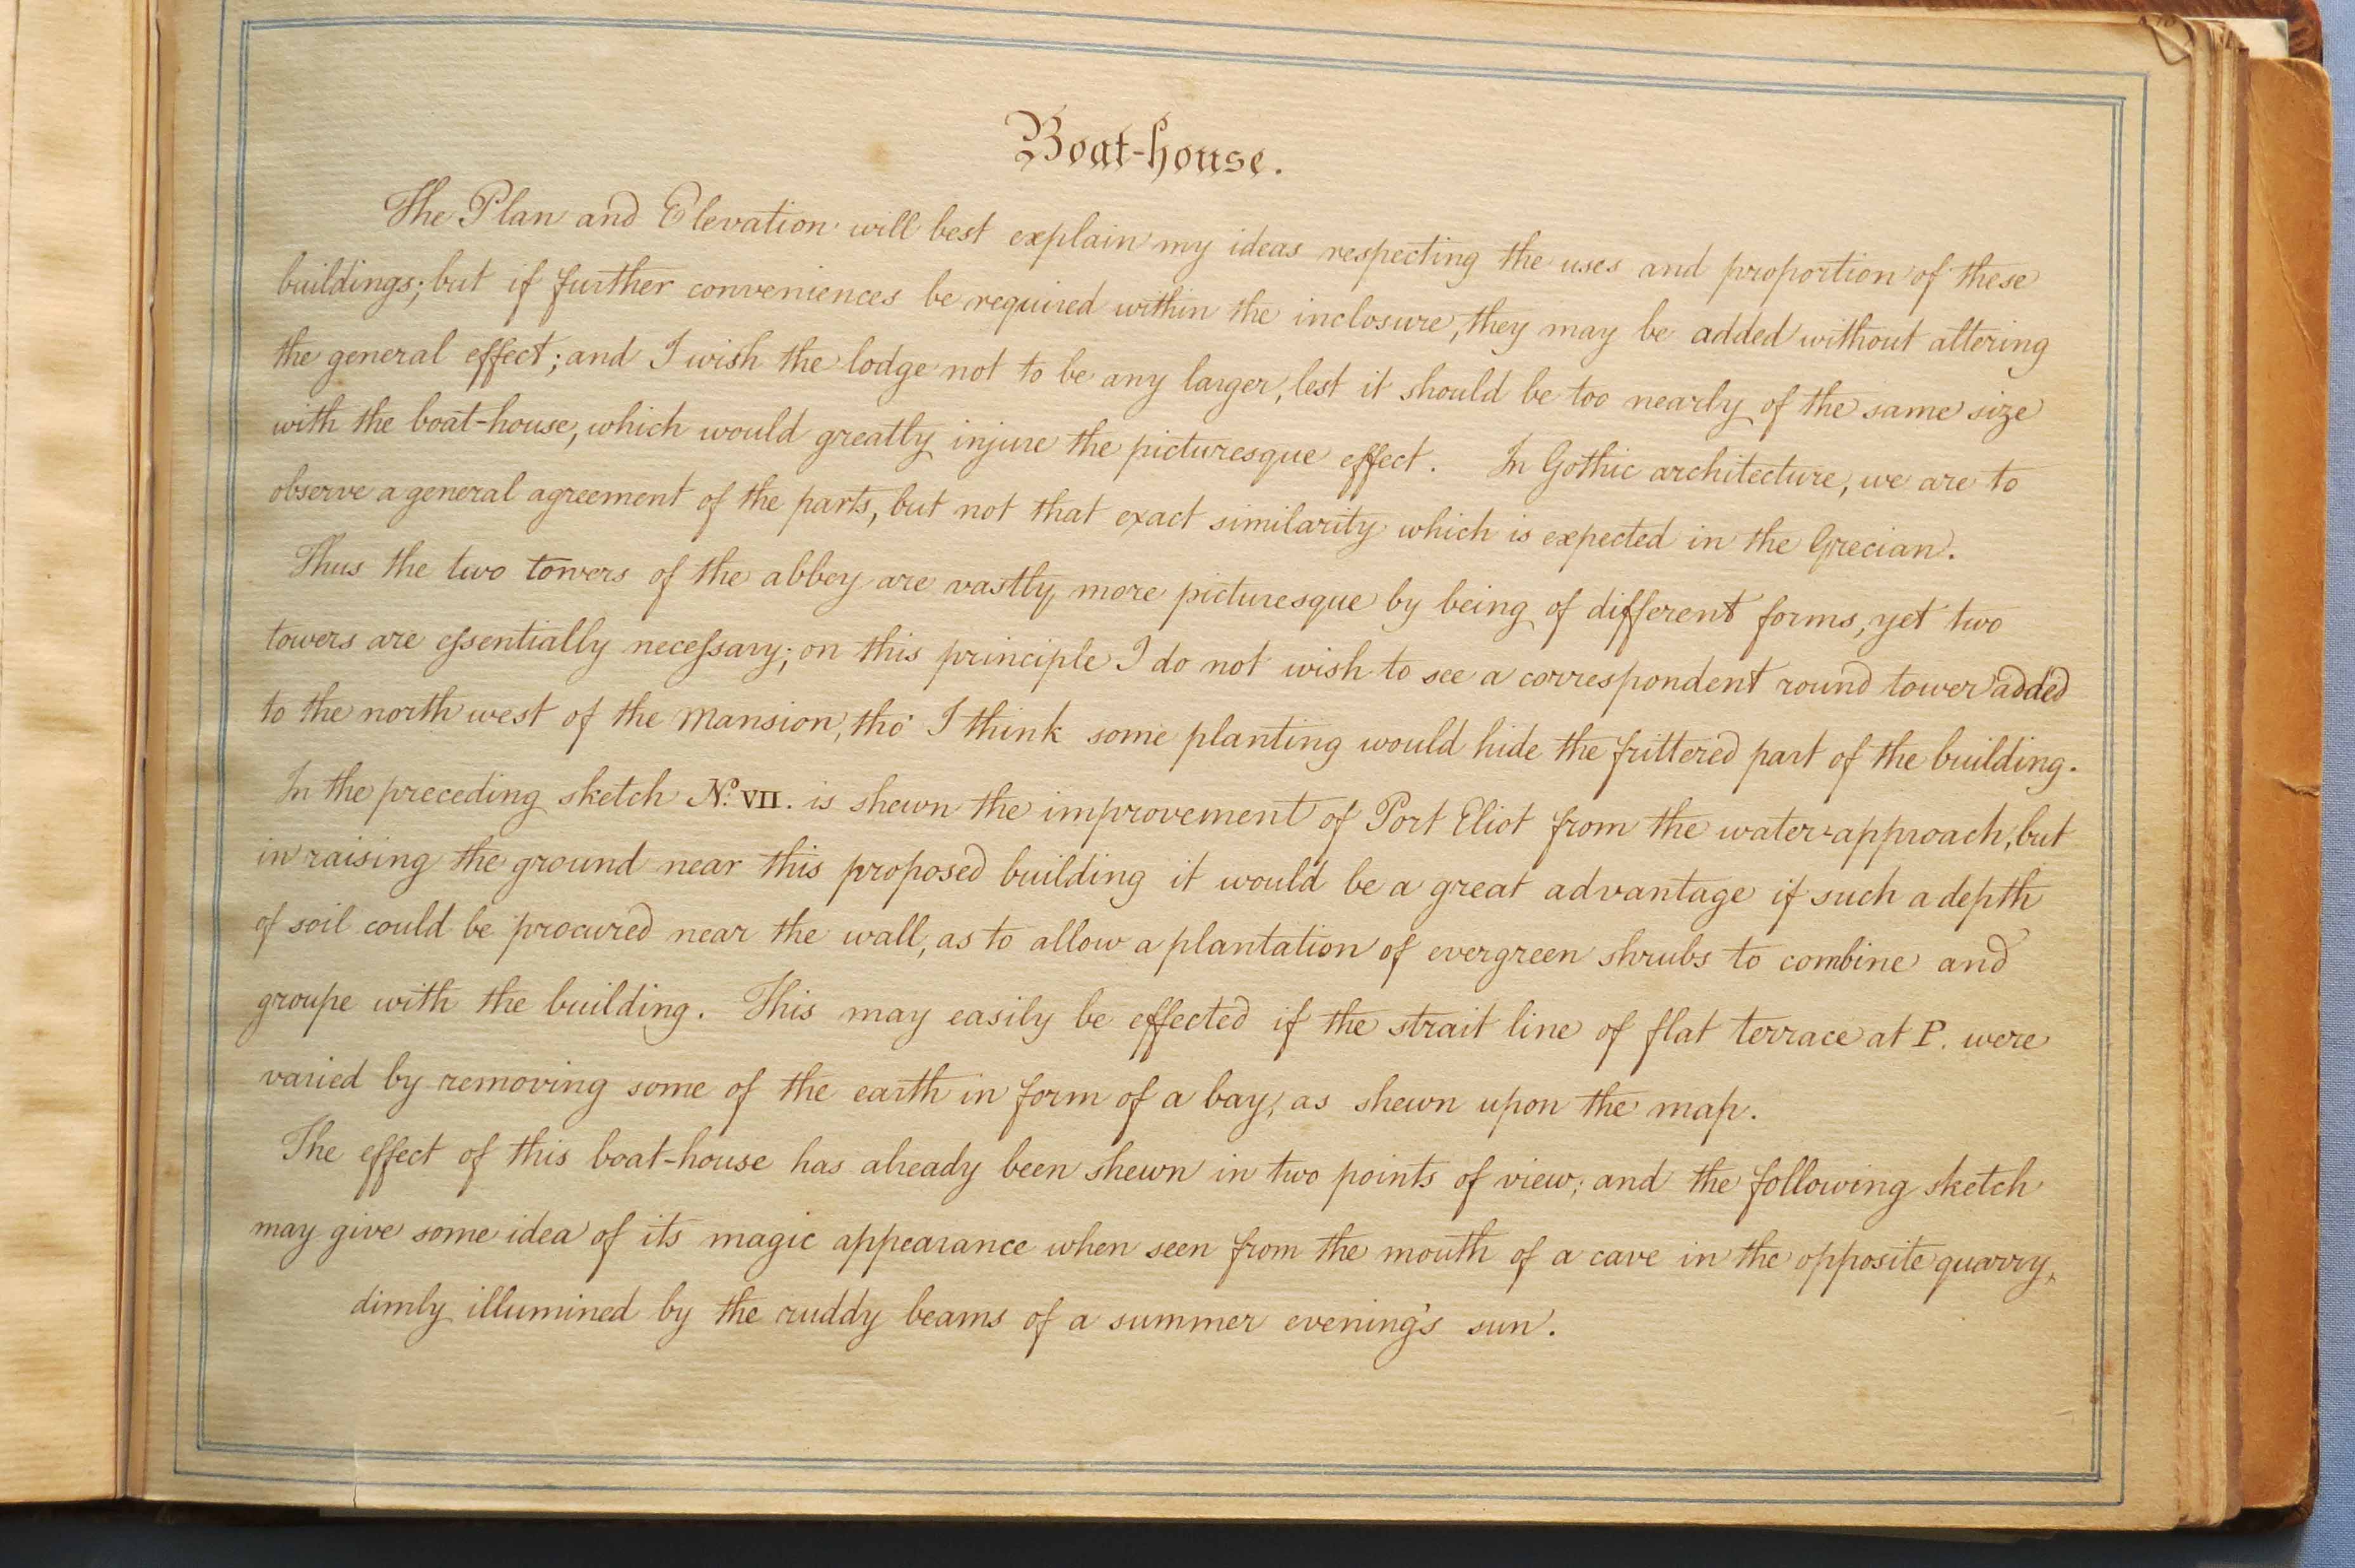 Boat-house.
The Plan and Elevation will best explain my ideas respecting the uses and proportion of these
buildings; but if further conveniences be required within the inclosure, they may be added without altering
the general effect; and I wish the lodge not to be any larger, lest it should be too nearly of the same size
with the boat-house, which would greatly injure the picturesque effect. In Gothic architecture, we are to
observe a general agreement of the parts, but not that exact similarity which is expected in the Grecian.
Thus the two towers of the abbey are vastly more picturesque by being of different forms, yet two
towers are eſsentially neceſsary; on this principle I do not wish to see a correspondent round tower added
to the north west of the Mansion, tho' I think some planting would hide the frittered part of the building.
In the preceding sketch No. VII. is shewn the improvement of Port Eliot from the water-approach, but
in raising the ground near this proposed building it would be a great advantage if such a depth
of soil could be procured near the wall, as to allow a plantation of evergreen shrubs to combine and
groupe with the building. This may easily be effected if the strait line of flat terrace at P. were
varied by removing some of the earth in form of a bay, as shewn upon the map.
The effect of this boat-house has already been shewn in two points of view; and the following sketch
may give some idea of its magic appearance when seen from the mouth of a cave in the opposite quarry,
dimly illumined by the ruddy beams of a summer evening's sun.